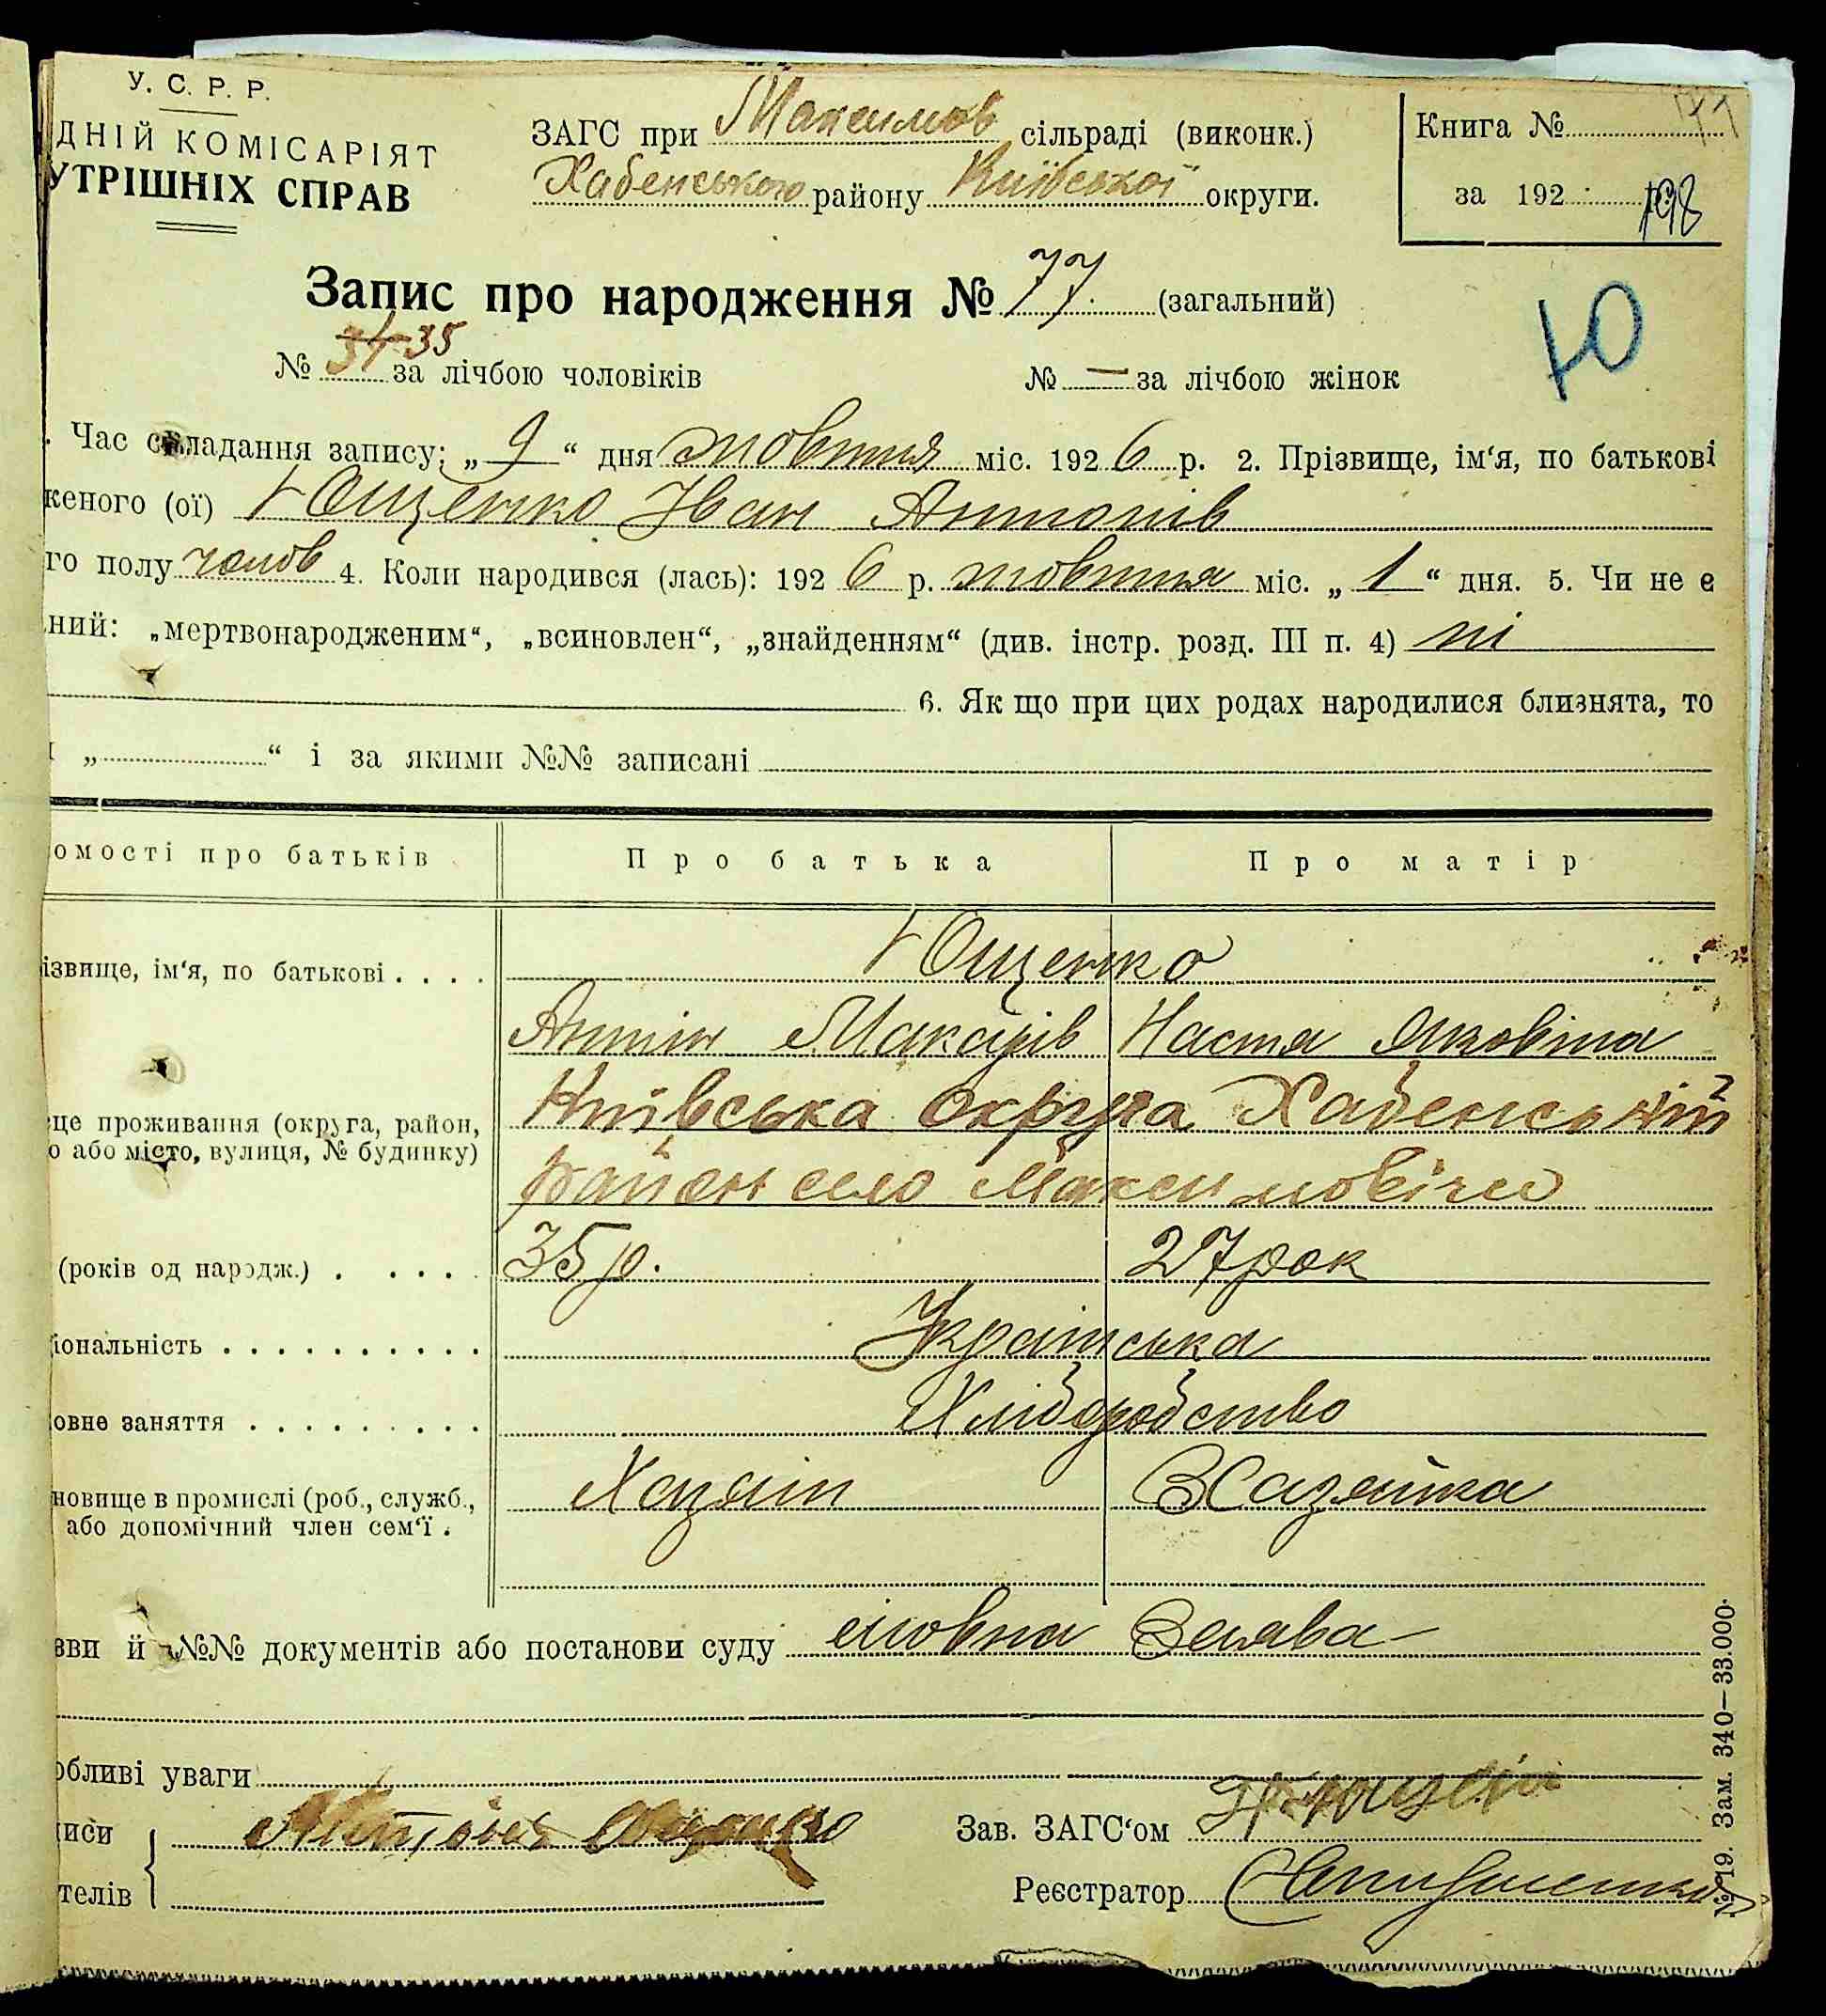 У. С. Р. Р.
ДНІЙ КОМІСАРІЯТ
УТРІШНІХ СПРАВ
ЗАГС при Максимов сільраді (виконк.)
Хабенського району Київської округи.
Книга №
за 192 р. 198
Запис про народження № 77 (загальний)
Ю
№ 34 35 за лічбою чоловіків № — за лічбою жінок
. Час складання запису: „ 9 “ дня жовтня міс. 192 6 р. 2. Прізвище, ім‘я, по батькові
женого (ої) Ющенко Іван Антонів
го полу чолов 4. Коли народився (лась): 192 6 р. жовтня міс. „ 1 “ дня. 5. Чи не є
ний: „мертвонародженим“, „всиновлен“, „знайденням“ (див. інстр. розд. III п. 4) ні
6. Як що при цих родах народилися близнята, то
„ “ і за якими №№ записані
омості про батьків Про батька Про матір
Ющенко
ізвище, ім‘я, по батькові . . . .
Антін Макарів Настя Яковівна
Київська округа Хабенський
це проживання (округа, район,
о або місто, вулиця, № будинку)
район село Максимовічи
(років од народж.) . . . . 35 р. 27 рок
іональність . . . . . . . . . . Українська
овне заняття . . . . . . . . . Хліборобство
новище в промислі (роб., служб., Хазяїн Хазяйка
або допомічний член сем‘ї .
зви й №№ документів або постанови суду словна Заява
обливі уваги
иси Антон Ющенко Зав. ЗАГС‘ом
телів Реєстратор
№ 19. Зам. 340—33.000.